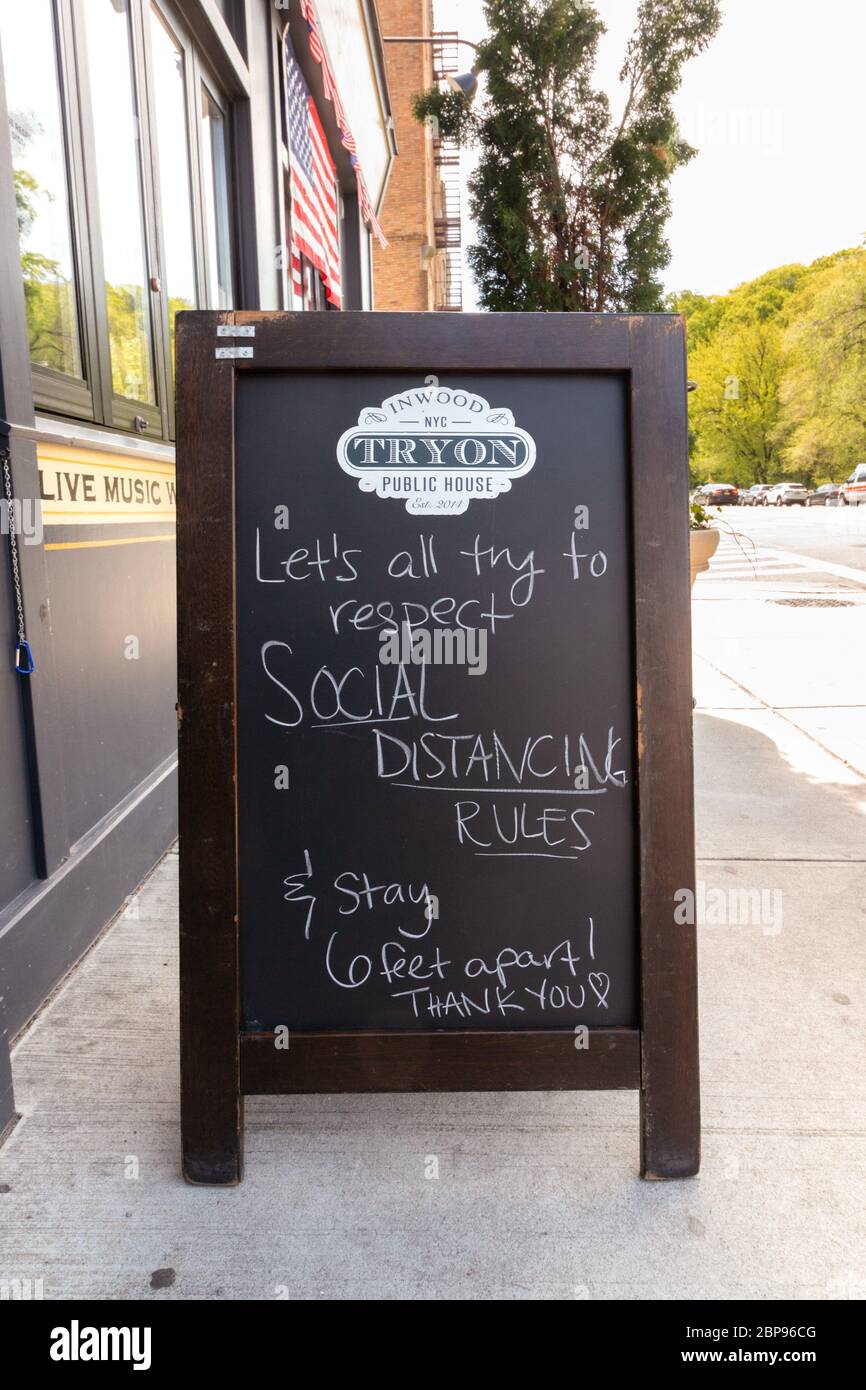 INWOOD
NYC
TRYON
PUBLIC HOUSE
Est. 2014
LIVE MUSIC W
Let's all try to
respect
SOCIAL
DISTANCING
RULES
& stay
6 feet apart!
THANK YOU♡
alamy
alamy
Image ID: 2BP96CG
www.alamy.com